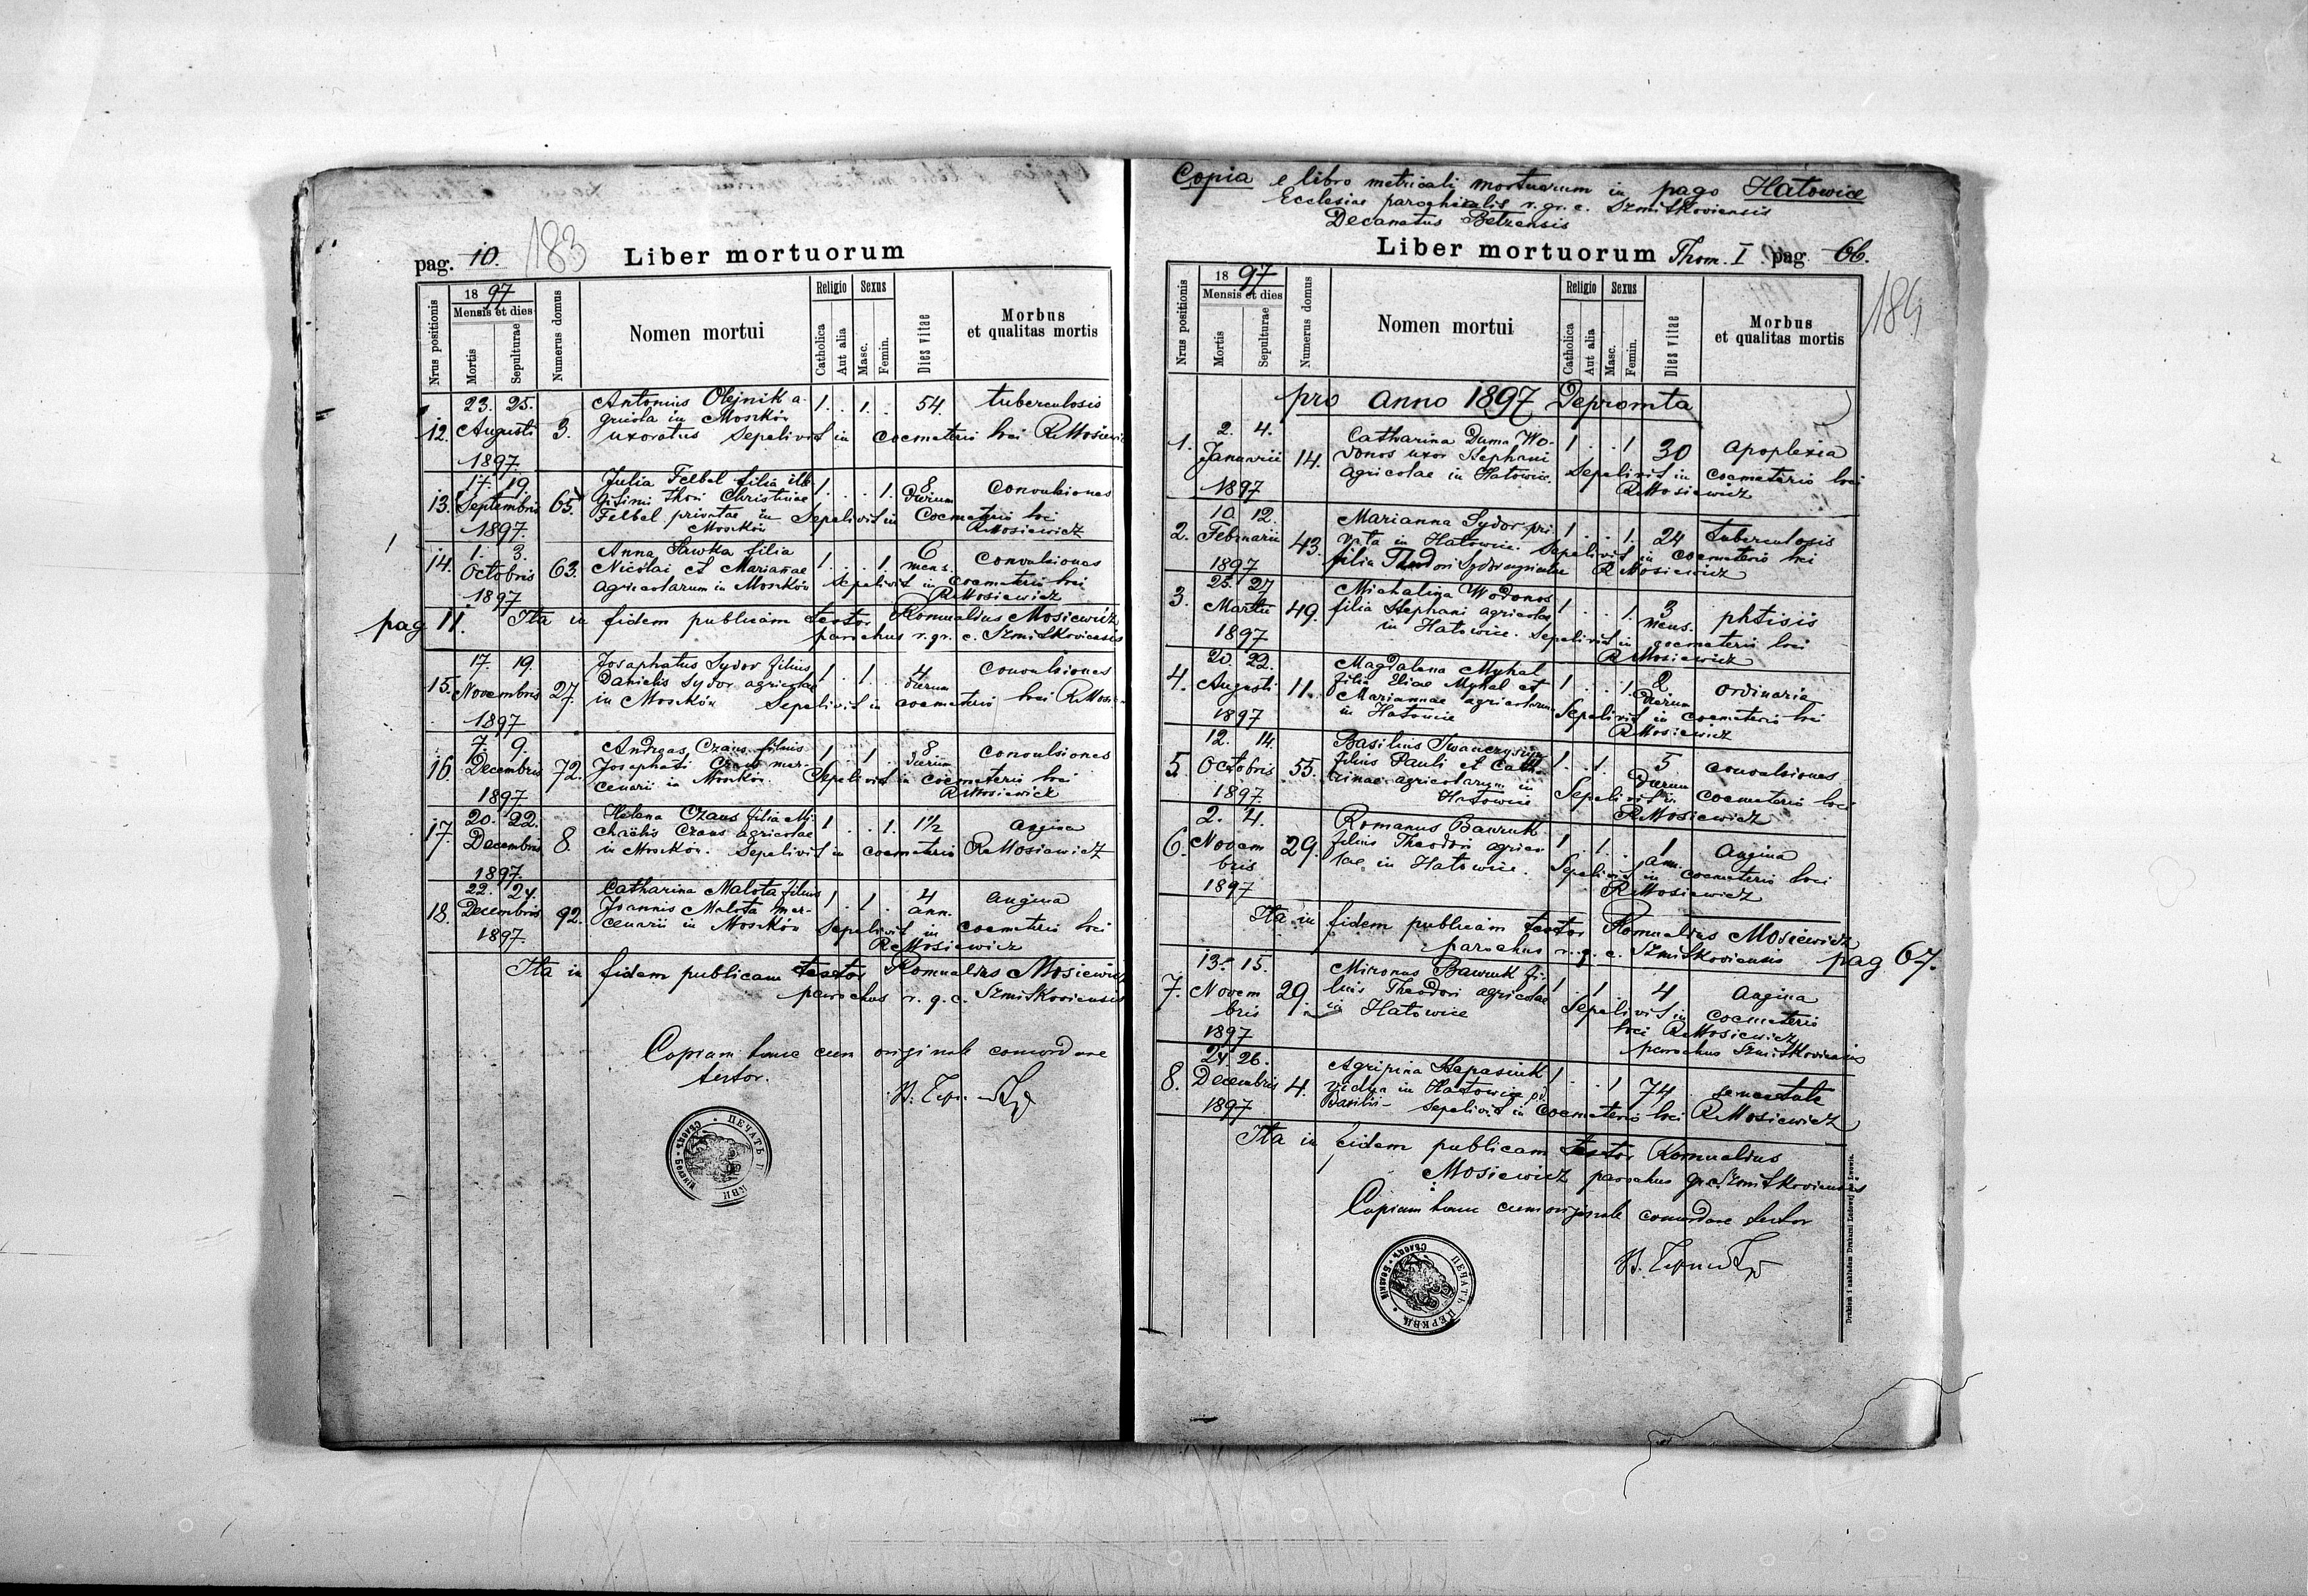 pag. 10. 183 Liber mortuorum
Nrus positionis
1897
Mensis et dies
Mortis
Sepulturae
Numerus domus
Nomen mortui
Religio
Catholica
Aut alia
Sexus
Masc.
Femin.
Dies vitae
Morbus
et qualitas mortis
23. 25. Antonius Olejnik a- 1. 1. 54. tuberculosis
12. Augusti 3. gricola in Moszków
uxoratus Sepelivit in coemeterio loci RMosiewicz
1897.
17. 19. Julia Felbel filia ille- 1. 1. 8 convulsiones
13. Septembris 65. gitimi thori Christinae dierum
1897. Felbel privatae in Sepelivit in Coemeterio loci
Moszków RMosiewicz
1. 3. Anna Sawka filia 1. 1. 6 convulsiones
14. Octobris 63. Nicolai et Mariannae mens.
1897 agricolarum in Moszków Sepelivit in coemeterio loci
RMosiewicz
pag 11. Ita in fidem publicam testor Romualdus Mosiewicz
parochus r. gr. c. Szmitkoviensis
17. 19. Josaphatus Sydor filius 1. 1. 4 convulsiones
15. Novembris 27. Danielis Sydor agricolae dierum
in Moszków Sepelivit in coemeterio loci
1897
7. 9. Andreas Czaus filius 1. 1. 8 convulsiones
16 Decembris 72. Josaphati Czaus mer- dierum
1897 cenarii in Moszków. Sepelivit in coemeterio loci
RMosiewicz
20. 22. Helena Czaus filia Mi- 1. 1. 1½ angina
17. Decembris 8. chaëlis Czaus agricolae
in Moszków. Sepelivit in coemeterio RMosiewicz
1897.
22. 24. Catharina Malota filius 1. 1. 4 angina
18. Decembris 92. Joannis Malota mer- ann.
1897. cenarii in Moszków Sepelivit in coemeterio loci
RMosiewicz
Ita in fidem publicam testor Romualdus Mosiewicz
parochus r. g. c. Szmitkoviensis
Copiam hanc cum originale concordare
testor.
ПЕЧАТЬ
Copia e libro metricali mortuorum in pago Hatowice
Ecclesiae parochialis r. gr. c. Szmitkoviensis
Decanatus Belzensis
Liber mortuorum Thom. I pag 66.
184
Nrus positionis
1897
Mensis et dies
Mortis
Sepulturae
Numerus domus
Nomen mortui
Religio
Catholica
Aut alia
Sexus
Masc.
Femin.
Dies vitae
Morbus
et qualitas mortis
pro anno 1897 Depromta
2. 4. Catharina Duma Wo- 1. 1 30 apoplexia
1. Januarii 14. donos uxor Stephani
1897 agricolae in Hatowice. Sepelivit in coemeterio loci
RMosiewicz
10. 12. Marianna Sydor pri- 1. 1. 24 tuberculosis
2. Februarii 43. vata in Hatowice. Sepelivit in coemeterio loci
1897 filia Theodori Sydor agricolae RMosiewicz
25. 27 Michalina Wodonos 1. 1. 3 phtisis
3. Martii 49. filia Stephani agricolae mens.
1897 in Hatowice. Sepelivit in coemeterio loci
RMosiewicz
20. 22. Magdalena Myhal 1. 1. 2 ordinaria
4. Augusti 11. filia Eliae Myhal et dierum
1897 Mariannae agricolarum Sepelivit in coemeterio loci
in Hatowice RMosiewicz
12. 14. Basilius 1. 1. 5 convulsiones
5. Octobris 55. filius Pauli et Catha- dierum
1897 rinae agricolarum in Sepelivit in coemeterio loci
Hatowice RMosiewicz
2. 4. Romanus Bawruk 1. 1. 1 Angina
6. Novem 29. filius Theodori agrico- ann.
bris lae in Hatowice. Sepelivit in coemeterio loci
1897 RMosiewicz
Ita in fidem publicam testor Romualdus Mosiewicz
parochus r. g. c. Szmitkoviensis pag 67.
13. 15. Mironus Bawruk fi- 1. 1. 4 Angina
7. Novem 29. lius Theodori agricolae Sepelivit in coemeterio
bris in Hatowice loci RMosiewicz
1897 parochus Szmitkoviensis
24. 26. Agripina 1. 1 74 senectute
8. Decembris 4. vidua in Hatowice
1897 Basilii Sepelivit in coemeterio loci RMosiewicz
Ita in fidem publicam testor Romualdus
Mosiewicz parochus gr. c. Szmitkoviensis
Copiam hanc cum originale concordare testor
ПЕЧАТЬ ЦЕРКВИ
Drukiem i nakładem Drukarni Ludowej we Lwowie.